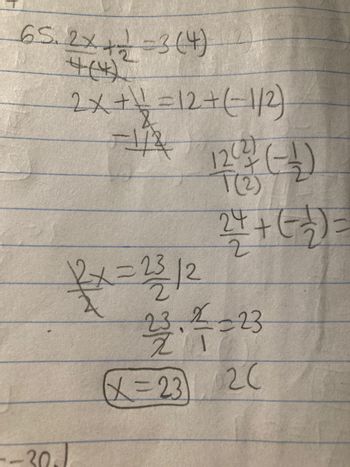 65. 2x/4(4) + 1/2 = 3(4)
2x + 1/2 = 12 + (-1/2)
-1/2
12(2)/1(2) + (-1/2)
24/2 + (-1/2) =
2x/2 = 23/2 /2
23/2 · 2/1 = 23
x = 23
-30.